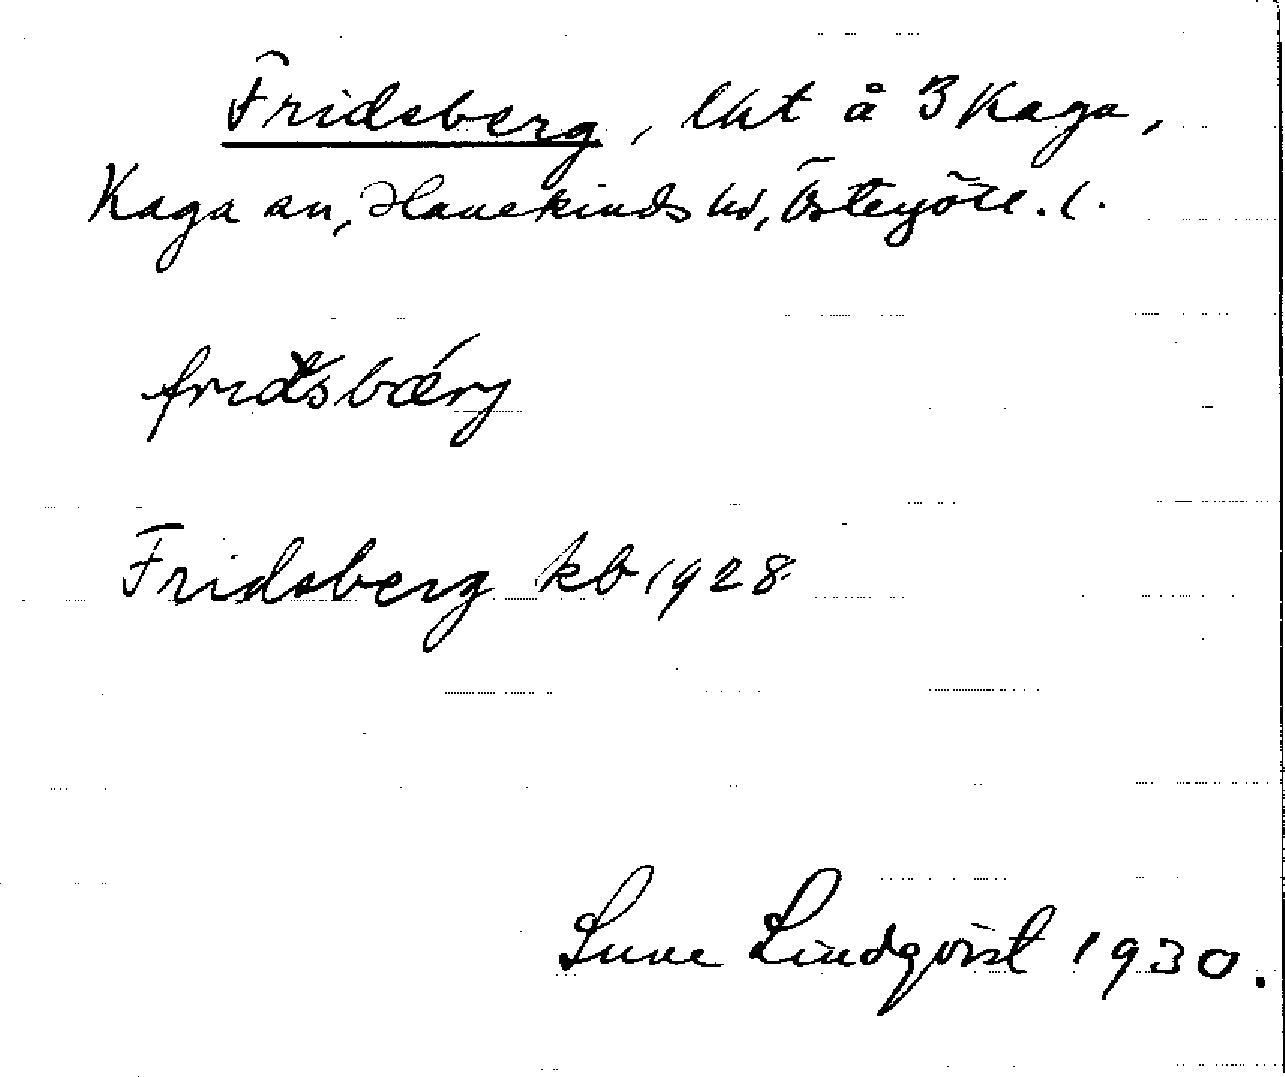 Fridsberg, lht å 3 Kaga,
Kaga sn, Hanekinds hd, Östergötl. l.
fridsbærj
Fridsberg kb 1928
Sune Lindqvist 1930.